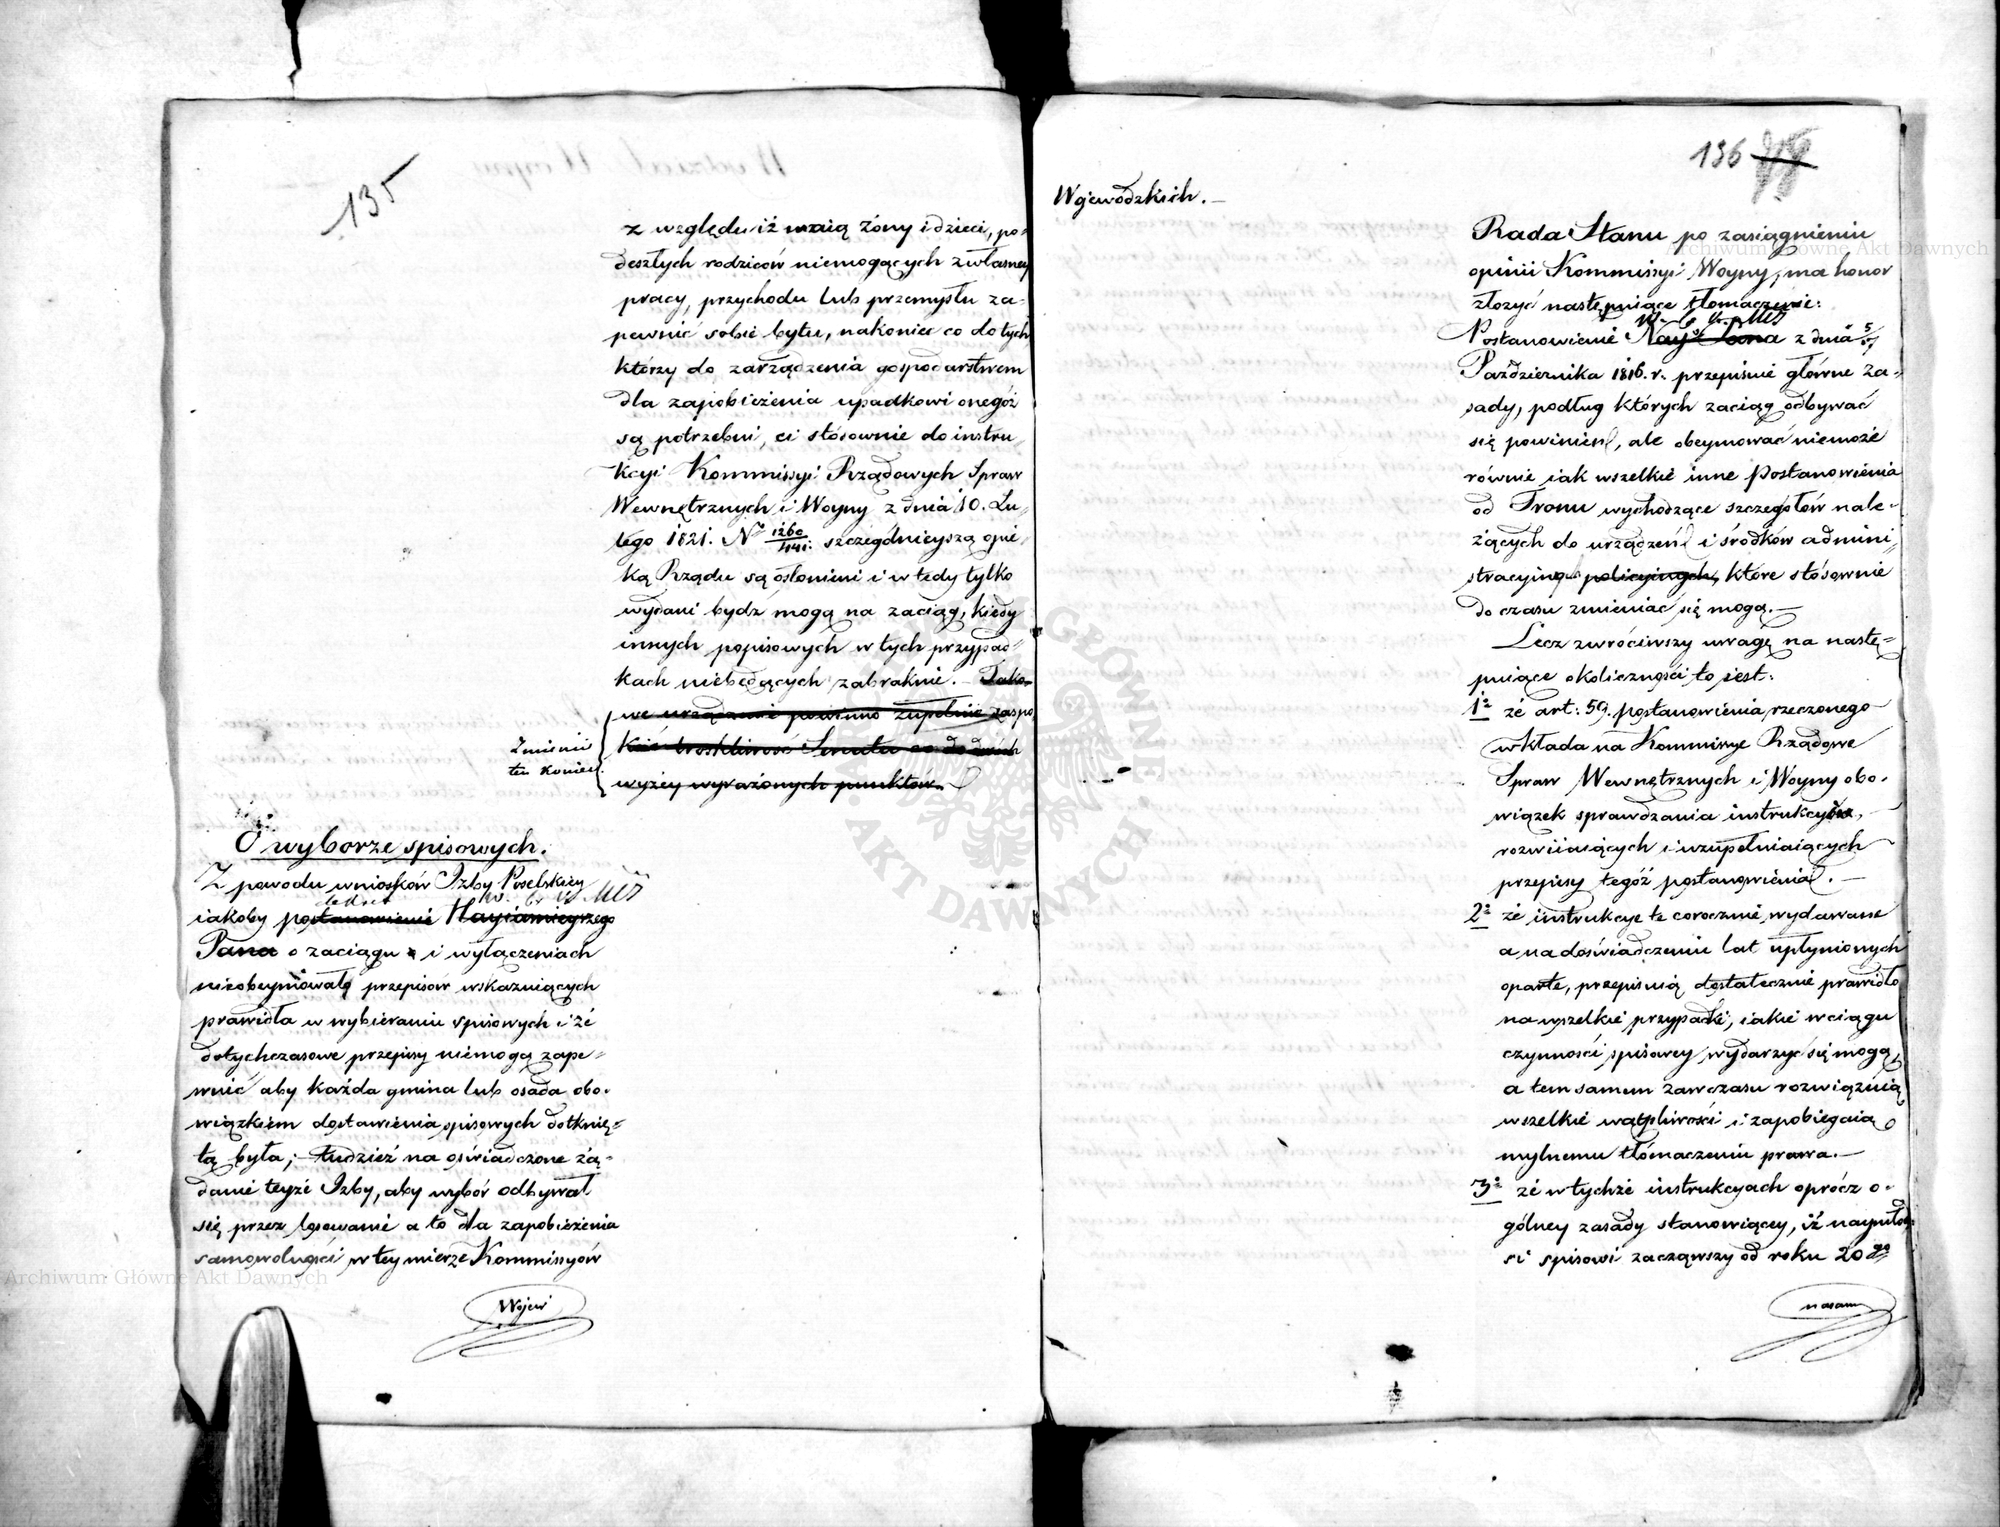 135
z względu iż maią żony i dzieci, po-
deszłych rodziców niemogących z własney
pracy, przychodu lub przemysłu za-
pewnić sobie bytu, nakoniec co do tych
którzy do zarządzenia gospodarstwem
dla zapobieżenia upadkowi onegóż
są potrzebni, ci stósownie do instru-
kcyi Kommissyi Rządowych Spraw
Wewnętrznych i Woyny z dnia 10. Lu-
tego 1821. Nr 1260/441: szczególnieyszą opie-
ką Rządu są osłonieni i w tedy tylko
wydani bydz mogą na zaciąg, kiedy
innych popisowych w tych przypad-
kach niebędących zabraknie. – Tako-
we urządzenie powinno zupełnie zaspo
koić troskliwosc Senatu co do dwóch
wyżey wyrażonych punktów.
Zmienić
ten koniec.
O wyborze spisowych.
Z powodu wniosków Izby Poselskiey
iakoby postanowienie Nayiaśnieyszego
Pana o zaciągu i wyłączeniach
nieobeymowało przepisów wskazuiących
prawidła w wybieraniu spisowych i że
dotychczasowe przepisy niemogą zape-
wnić aby każda gmina lub osada obo-
wiązkiem dostawienia spisowych dotknię-
tą była; – tudzież na oświadczone żą-
danie teyże Izby, aby wybór odbywał
się przez losowanie a to dla zapobieżenia
samowolności w tey mierze Kommissyów
Wojew
Archiwum Główne Akt Dawnych
136
Wojewódzkich. –
Rada Stanu po zasiągnieniu
Archiwum Główne Akt Dawnych
opinii Kommissyi Woyny, ma honor
złożyć następuiące tłomaczenie:
Postanowienie Nayś Pana z dnia
Października 1816. r. przepisuie główne za-
sady, podług których zaciąg odbywać
się powinien, ale obeymować niemoże
równie iak wszelkie inne postanowienia
od Tronu wychodzące szczegółów nale-
żących do urządzeń i środków admini-
stracyinych policyinych, które stósownie
do czasu zmieniać się mogą. –
Lecz zwróciwszy uwagę na nastę-
puiące okoliczności to iest:
1o że art: 59. postanowienia rzeczonego
wkłada na Kommissye Rządowe
Spraw Wewnętrznych i Woyny obo-
wiązek sprawdzania instrukcyów, –
rozwiiaiących i uzupełniaiących
przepisy tegóż postanowienia. –
2o że instrukcye te corocznie wydawane
a na doświadczeniu lat upłynionych
oparte, przepisuią dostatecznie prawidło
na wszelkie przypadki, iakie w ciągu
czynności spisowey wydarzyć się mogą
a tem samem zawczasu rozwiązuią
wszelkie wątpliwości i zapobiegaią
mylnemu tłomaczeniu prawa. –
3o że w tychże instrukcyach oprócz o-
gólney zasady stanowiącey, iż naymłod-
si spisowi zacząwszy od roku 20go
GŁÓWNE
ARCHIWUM
AKT DAWNYCH